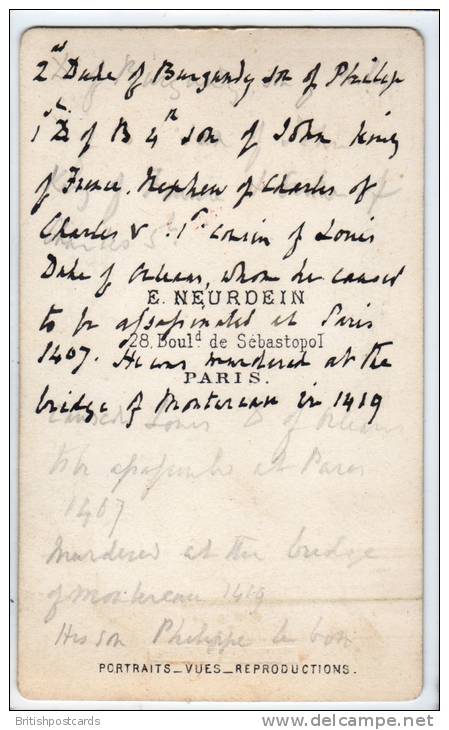 2nd Duke of Burgundy son of Philip
1st D of B 4th son of John King
of France. Nephew of Charles of
Charles V. 1st cousin of Louis
Duke of Orleans, whom he caused
E. NEURDEIN
to be assassinated at Paris
28, Bould de Sébastopol
1407. He was murdered at the
PARIS.
bridge of Montereau in 1419
caused Louis D of Orleans
to be assassinated at Paris
1407
Murdered at the bridge
of Montereau 1419
His son Philippe le bon
PORTRAITS_VUES_REPRODUCTIONS.
Britishpostcards